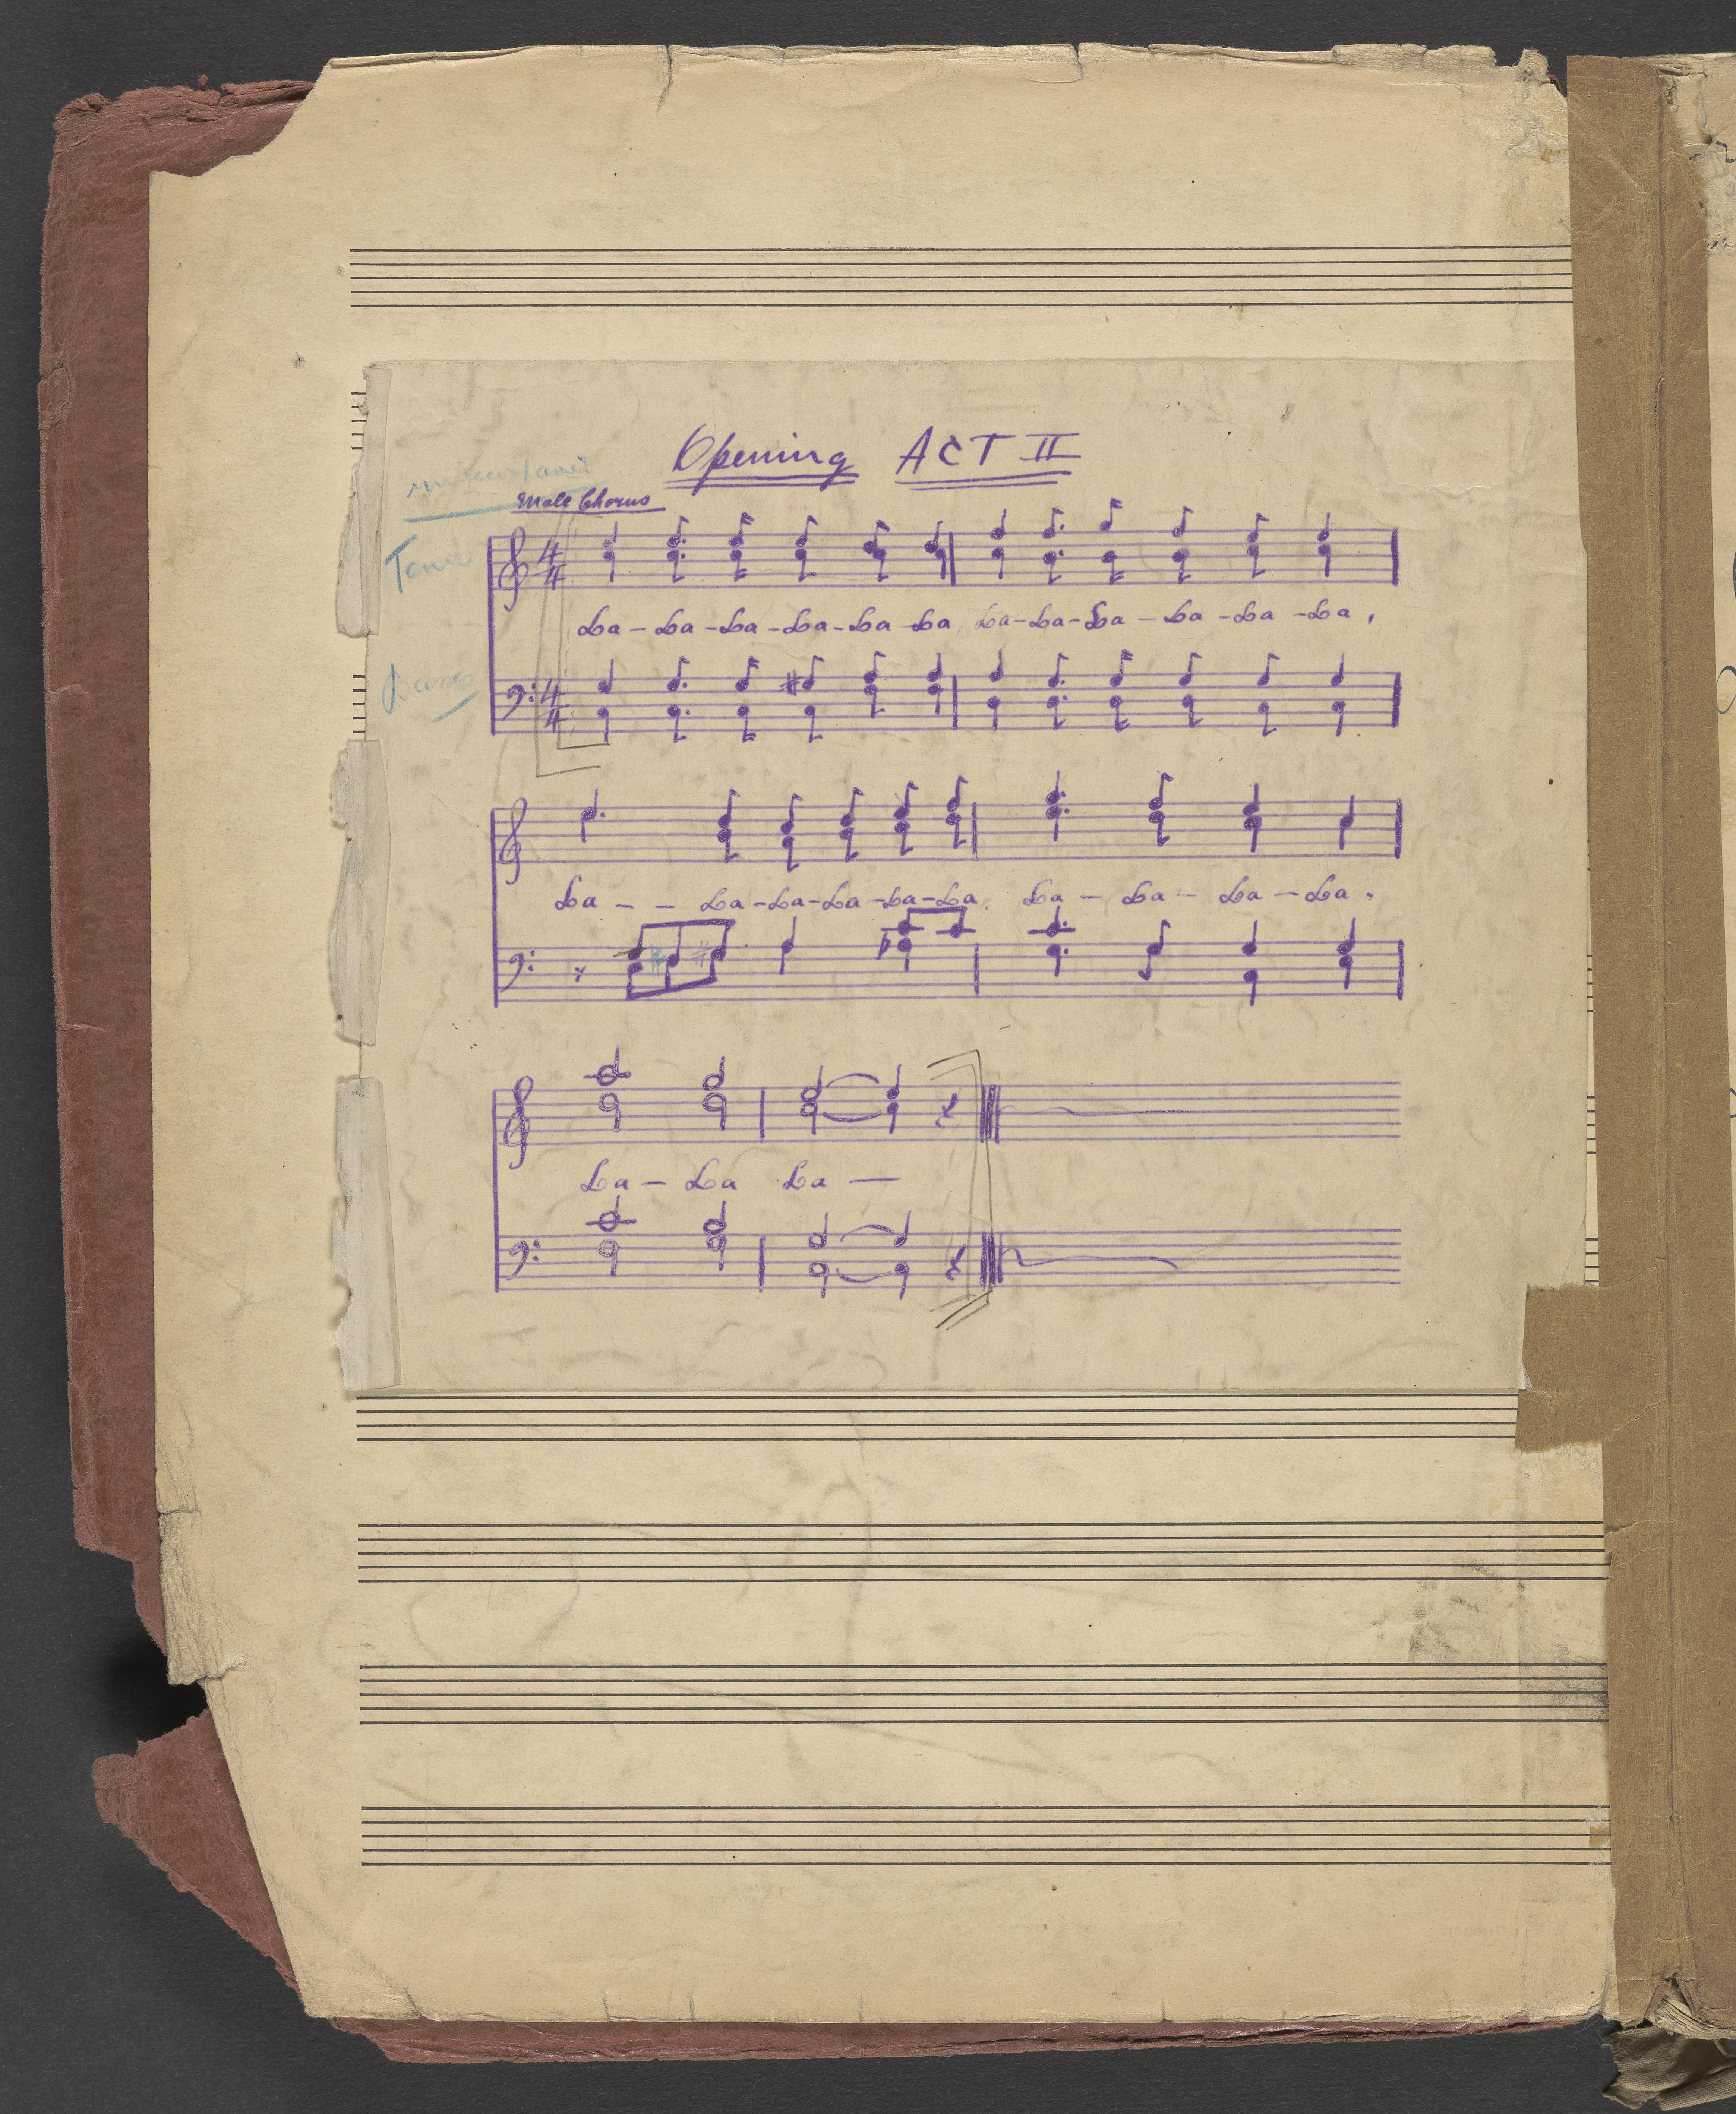 Opening ACT II
Male Chorus
Tenor
4 4
La - La - La - La - La La, La - La - La - La - La - La,
Bass
4 4
La - - La - La - La - La - La. La - La - La - La.
La - La La —